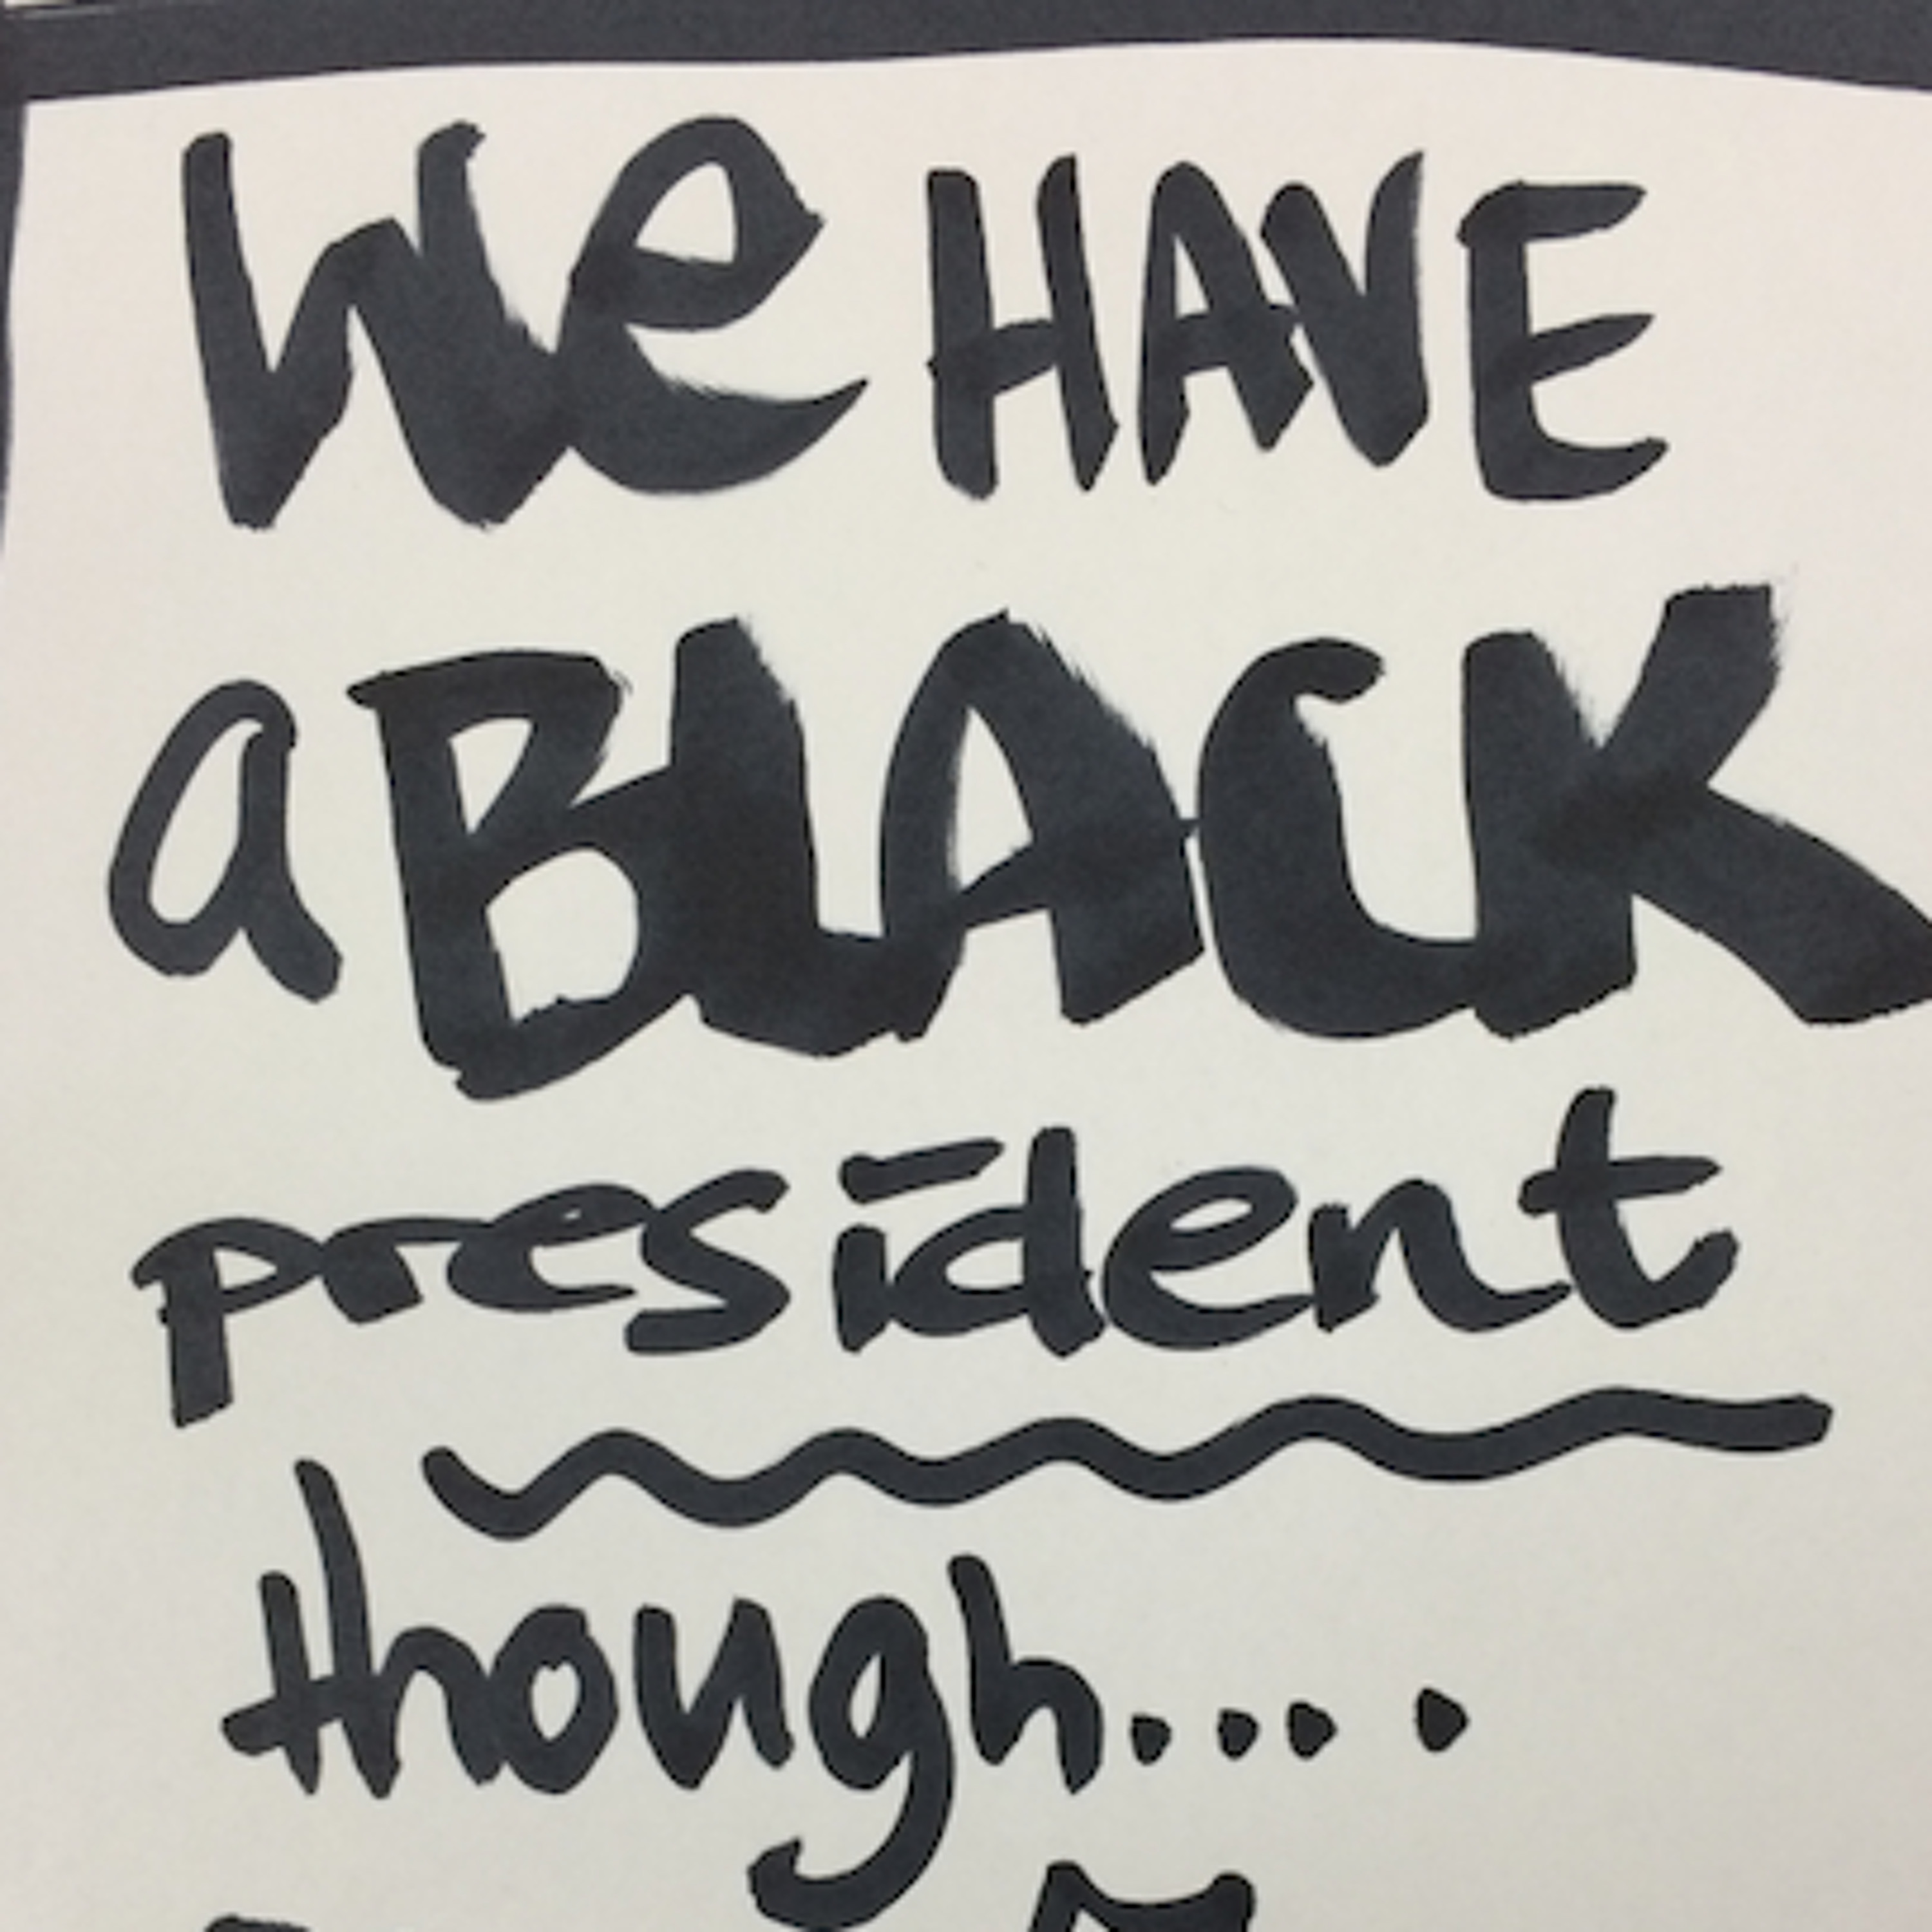 We HAVE
a BLACK
president
though....